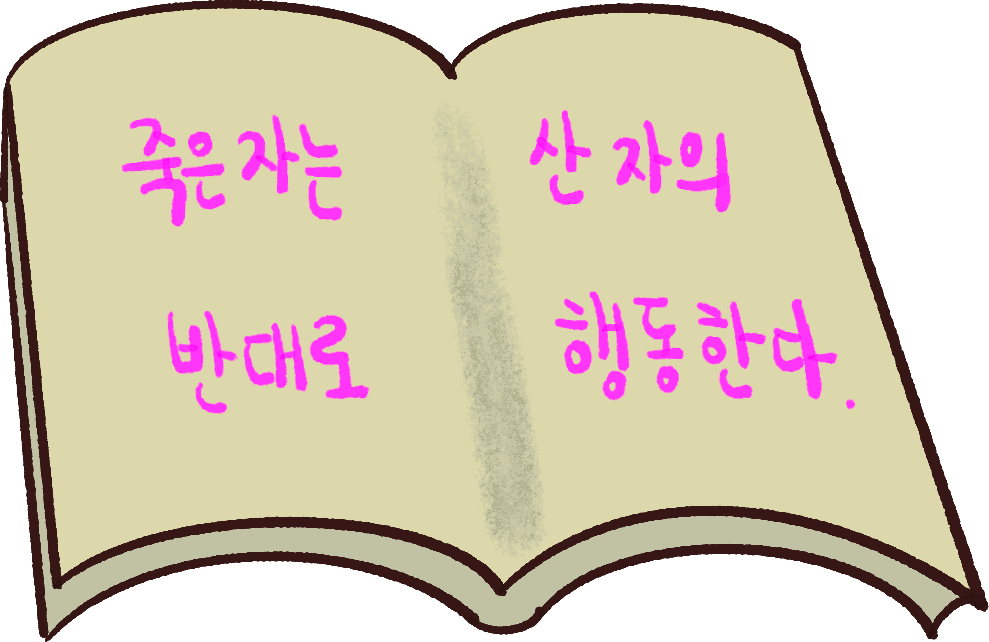 죽은 자는 산 자의
반대로 행동한다.